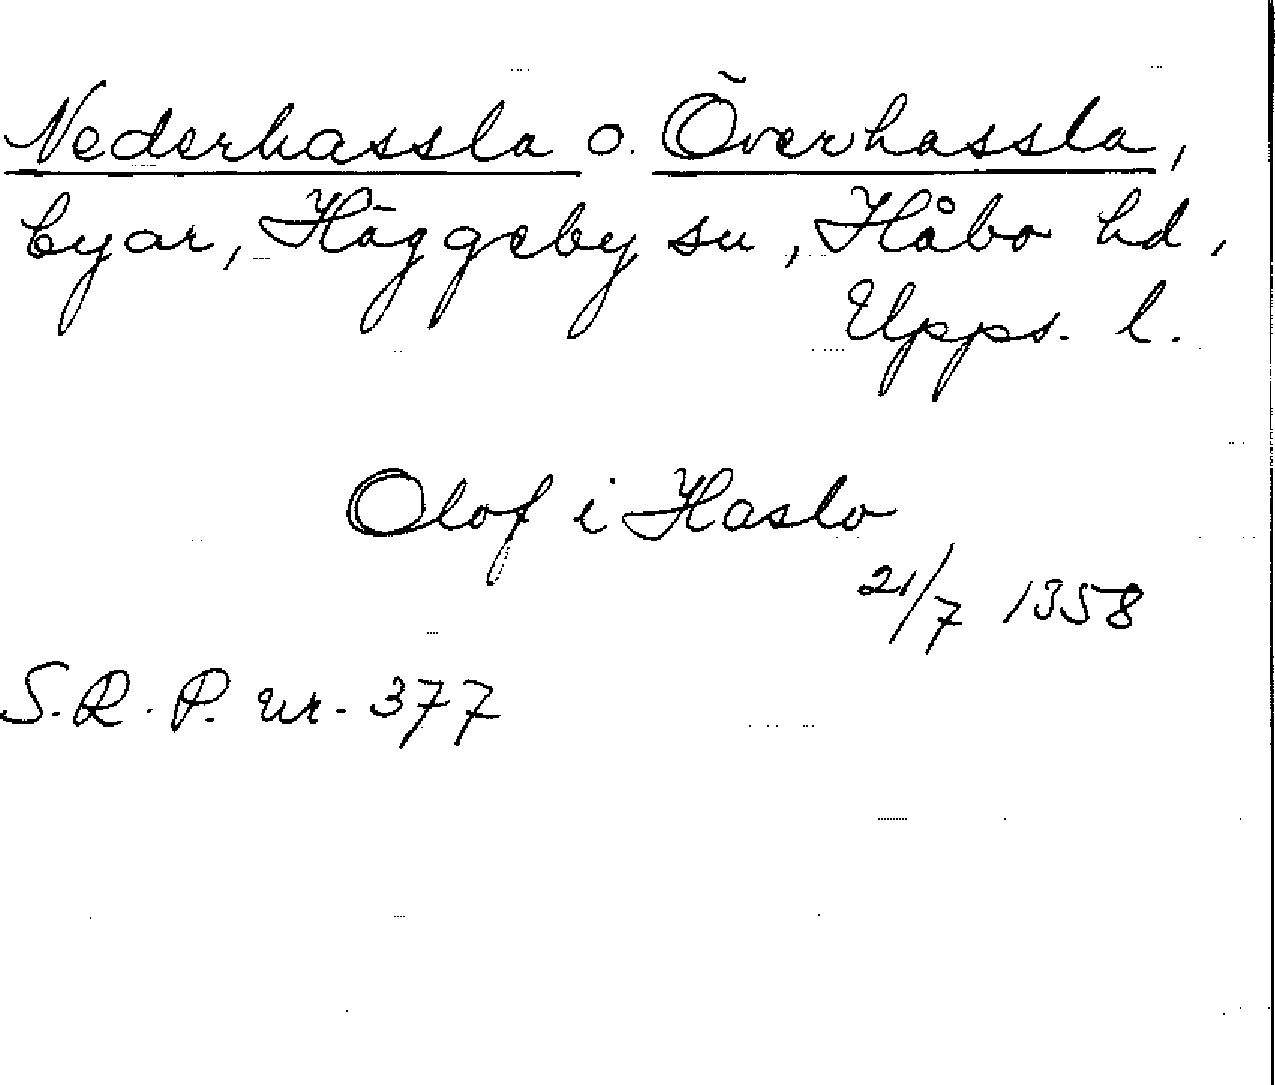 Nederhassla o. Överhassla,
byar, Häggeby sn, Håbo hd,
Upps. l.
Olof i Haslo
21/7 1358
S.R.P. nr. 377